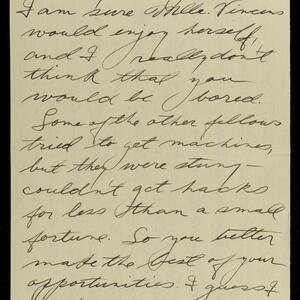 I am sure Mlle. Vincens
would enjoy herself,
and I really don't
think that you
would be bored.
Some of the other fellows
tried to get machines,
but they were stung—
couldn't get hacks
for less than a small
fortune. So you better
make the best of your
opportunities. I guess I